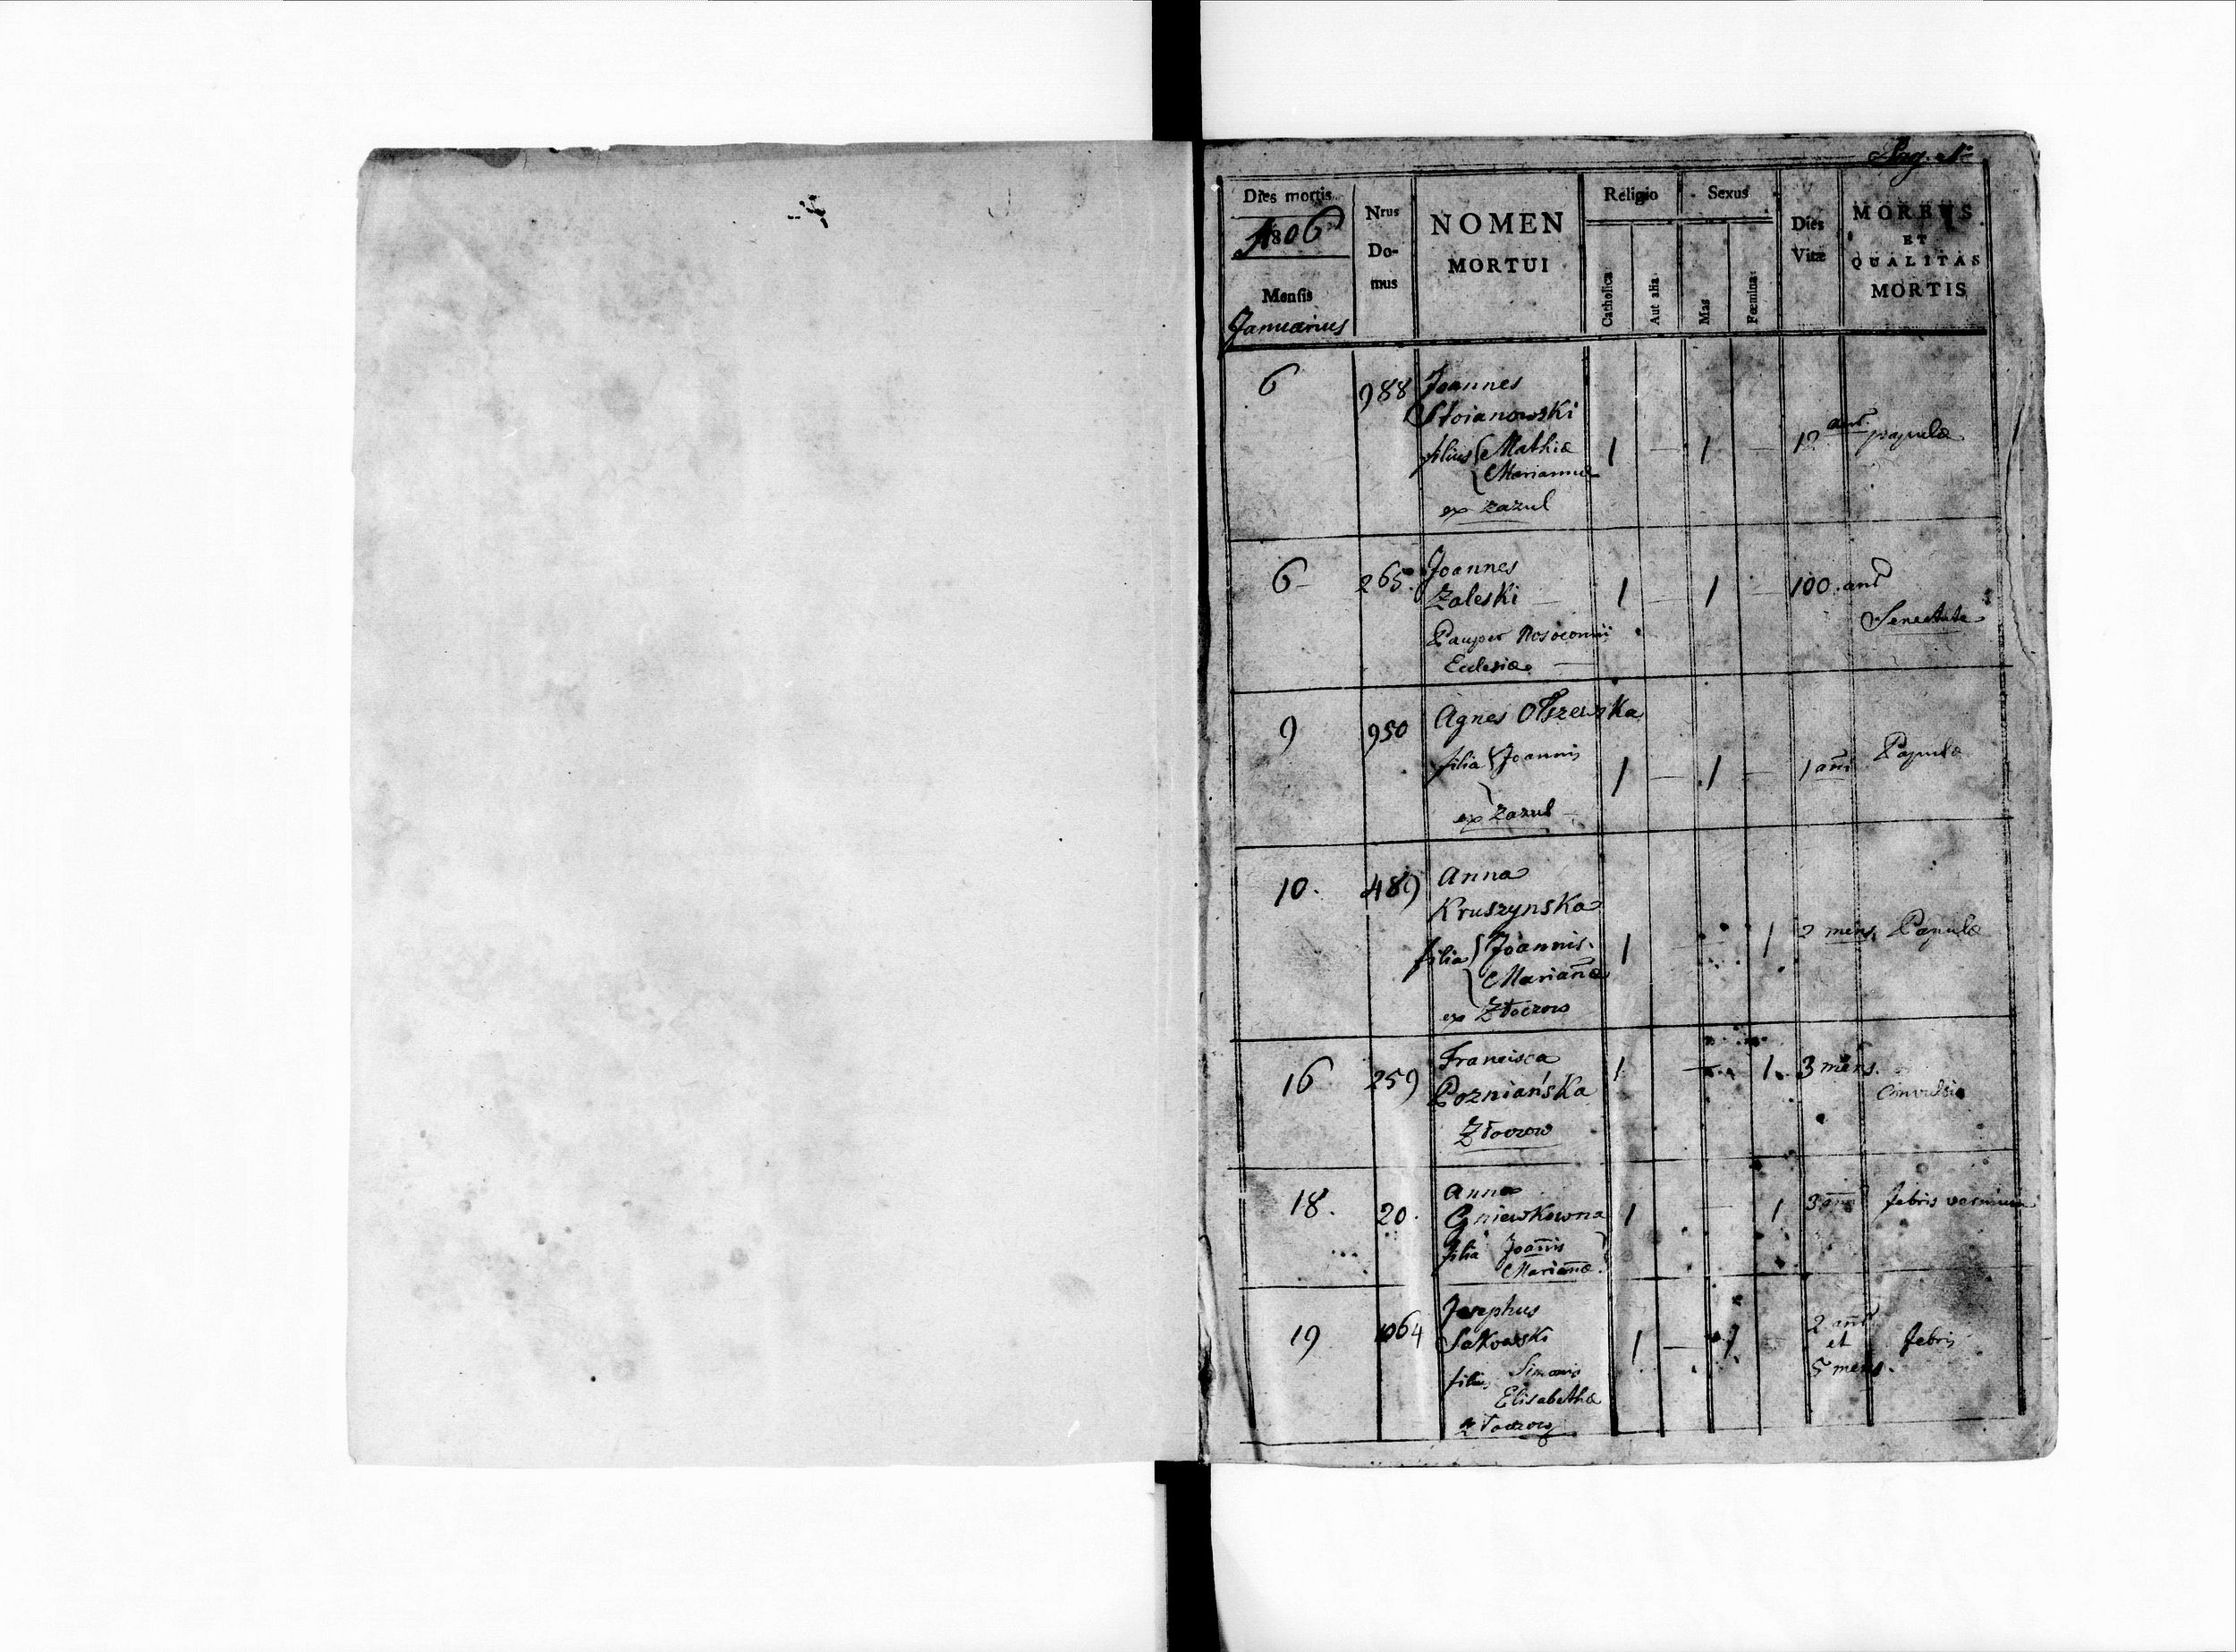 Pag. 1ma
Dies mortis
1806
Mensis
Januarius
Nrus
Do-
mus
NOMEN
MORTUI
Religio
Catholica
Aut alia
Sexus
Mas
Fœmina
Dies
Vitæ
MORBUS
ET
QUALITAS
MORTIS
6 988 Joannes
Stoianowski
filius { Mathiæ 1 — 1 — 12 ann. papulæ
{ Mariannæ
ex Zazul
6 265. Joannes
Zaleski — 1 — 1 — 100. ann
Senectute
Pauper Nosocomii
Eclesiæ —
9 950 Agnes Olszewska
filia { Joannis 1 — 1 — 1 anni Papulæ
ex Zazul —
10. 489 Anna
Kruszynska
filia { Joannis. 1 — 1 2 mens. Papulæ
{ Marian̄æ
ex Złoczow
16 259 Francisca 1 — 1. 3 mens.
Poznianska Convulsio
Złoczow
18. 20. Anna
Gniewkowna 1 — 1 3 febris
filia Joan̄is
Marian̄æ
19 1064 Josephus
Sakowski 1 — 1 2 ann. et 5 mens. febris
filius Simonis
Elisabethæ
Złoczow